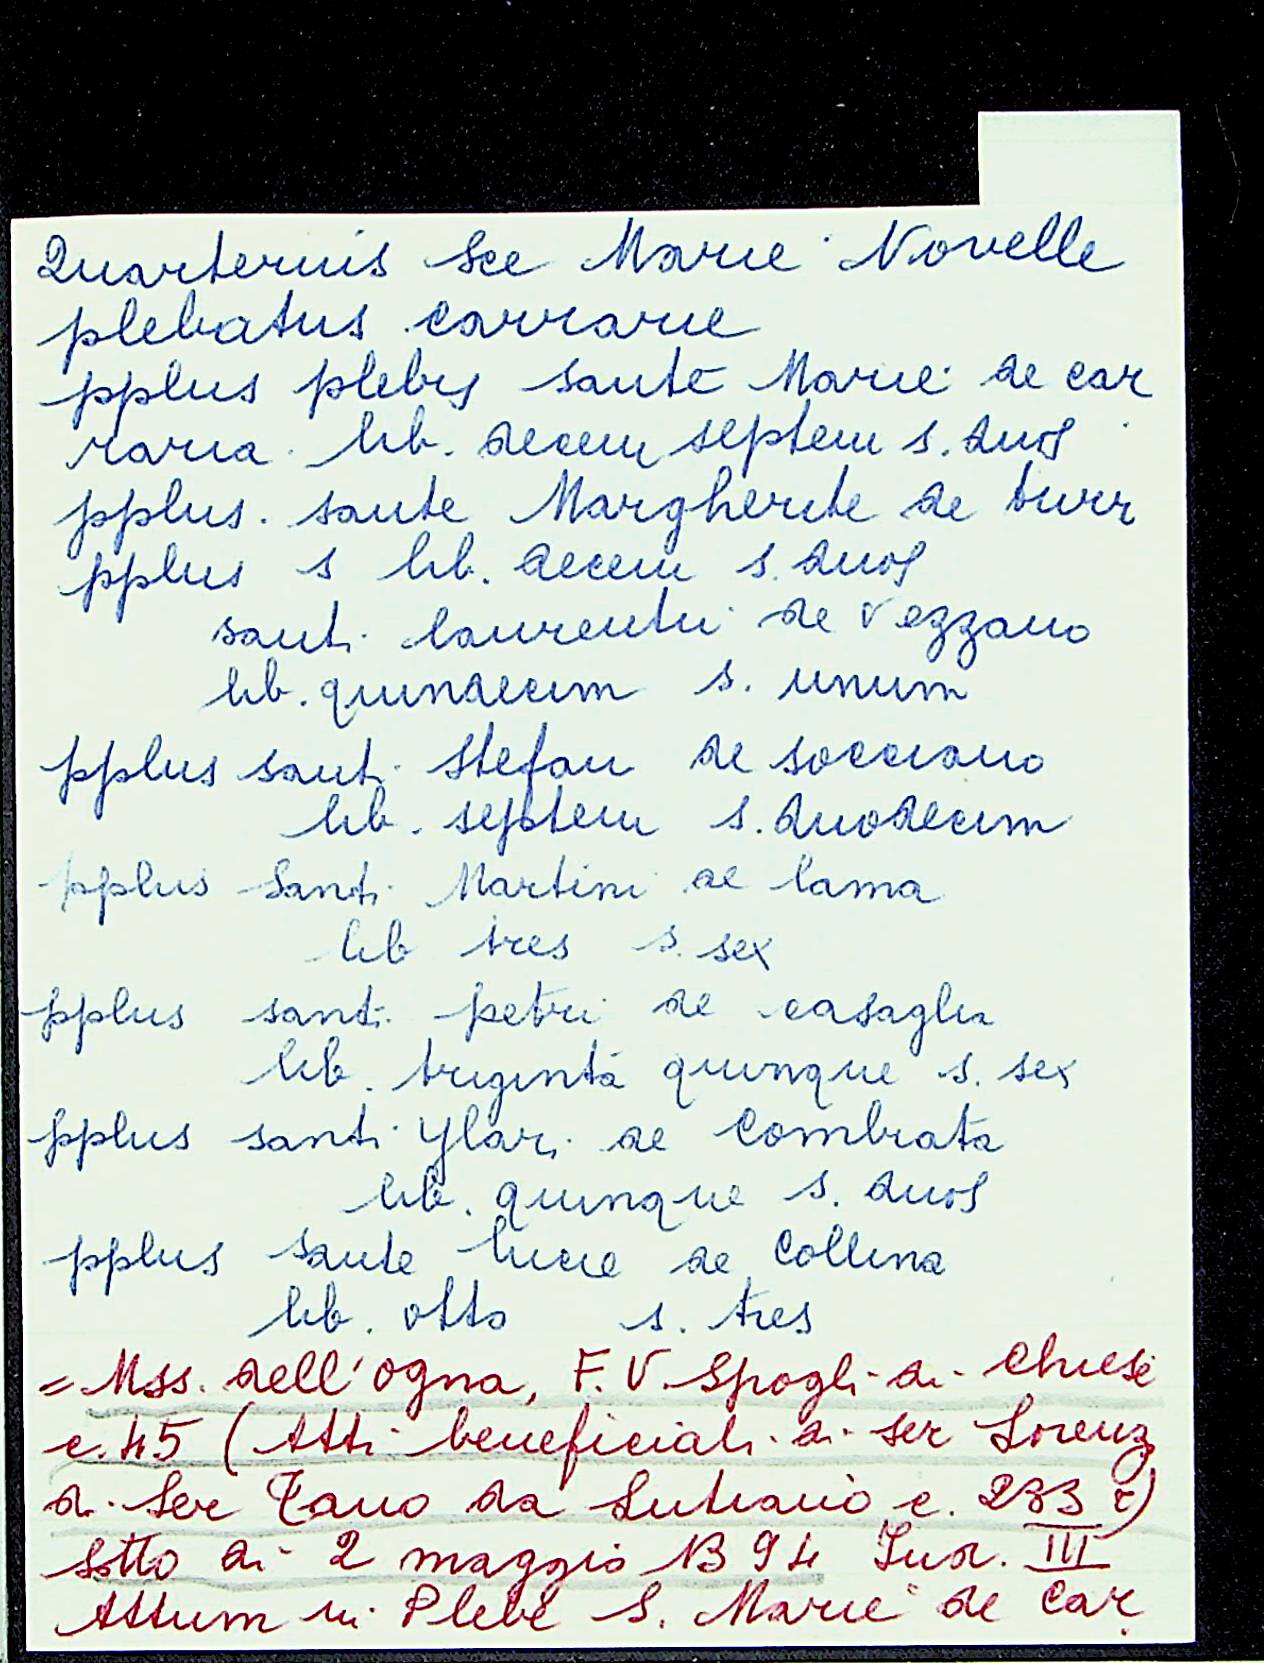 Quarternis Sce Marie Novelle
plebatus carrarie
pplus plebis sante Marie de car
raria. lib. decem septem s. duos
pplus. sante Margherite de turr
pplus s lib. decem s. duos
santi laurentii de Vezzano
lib. quindecim s. unum
pplus santi Stefani de socciano
lib. septem s. duodecim
pplus Santi Martini de lama
lib tres s. sex
pplus santi petri de casaglia
lib. triginta quinque s. sex
pplus santi Ylari de Combiata
lib. quinque s. duos
pplus sante lucie de Collina
lib. otto s. tres
= Mss. dell'Ogna, F. V. Spogli di Chiese
c. 45 (Atti beneficiali di ser Lorenz
di Ser Tano da Lutiano c. 233 r)
sotto di 2 maggio 1394 Ind. III
Attum in Plebe S. Marie de Car